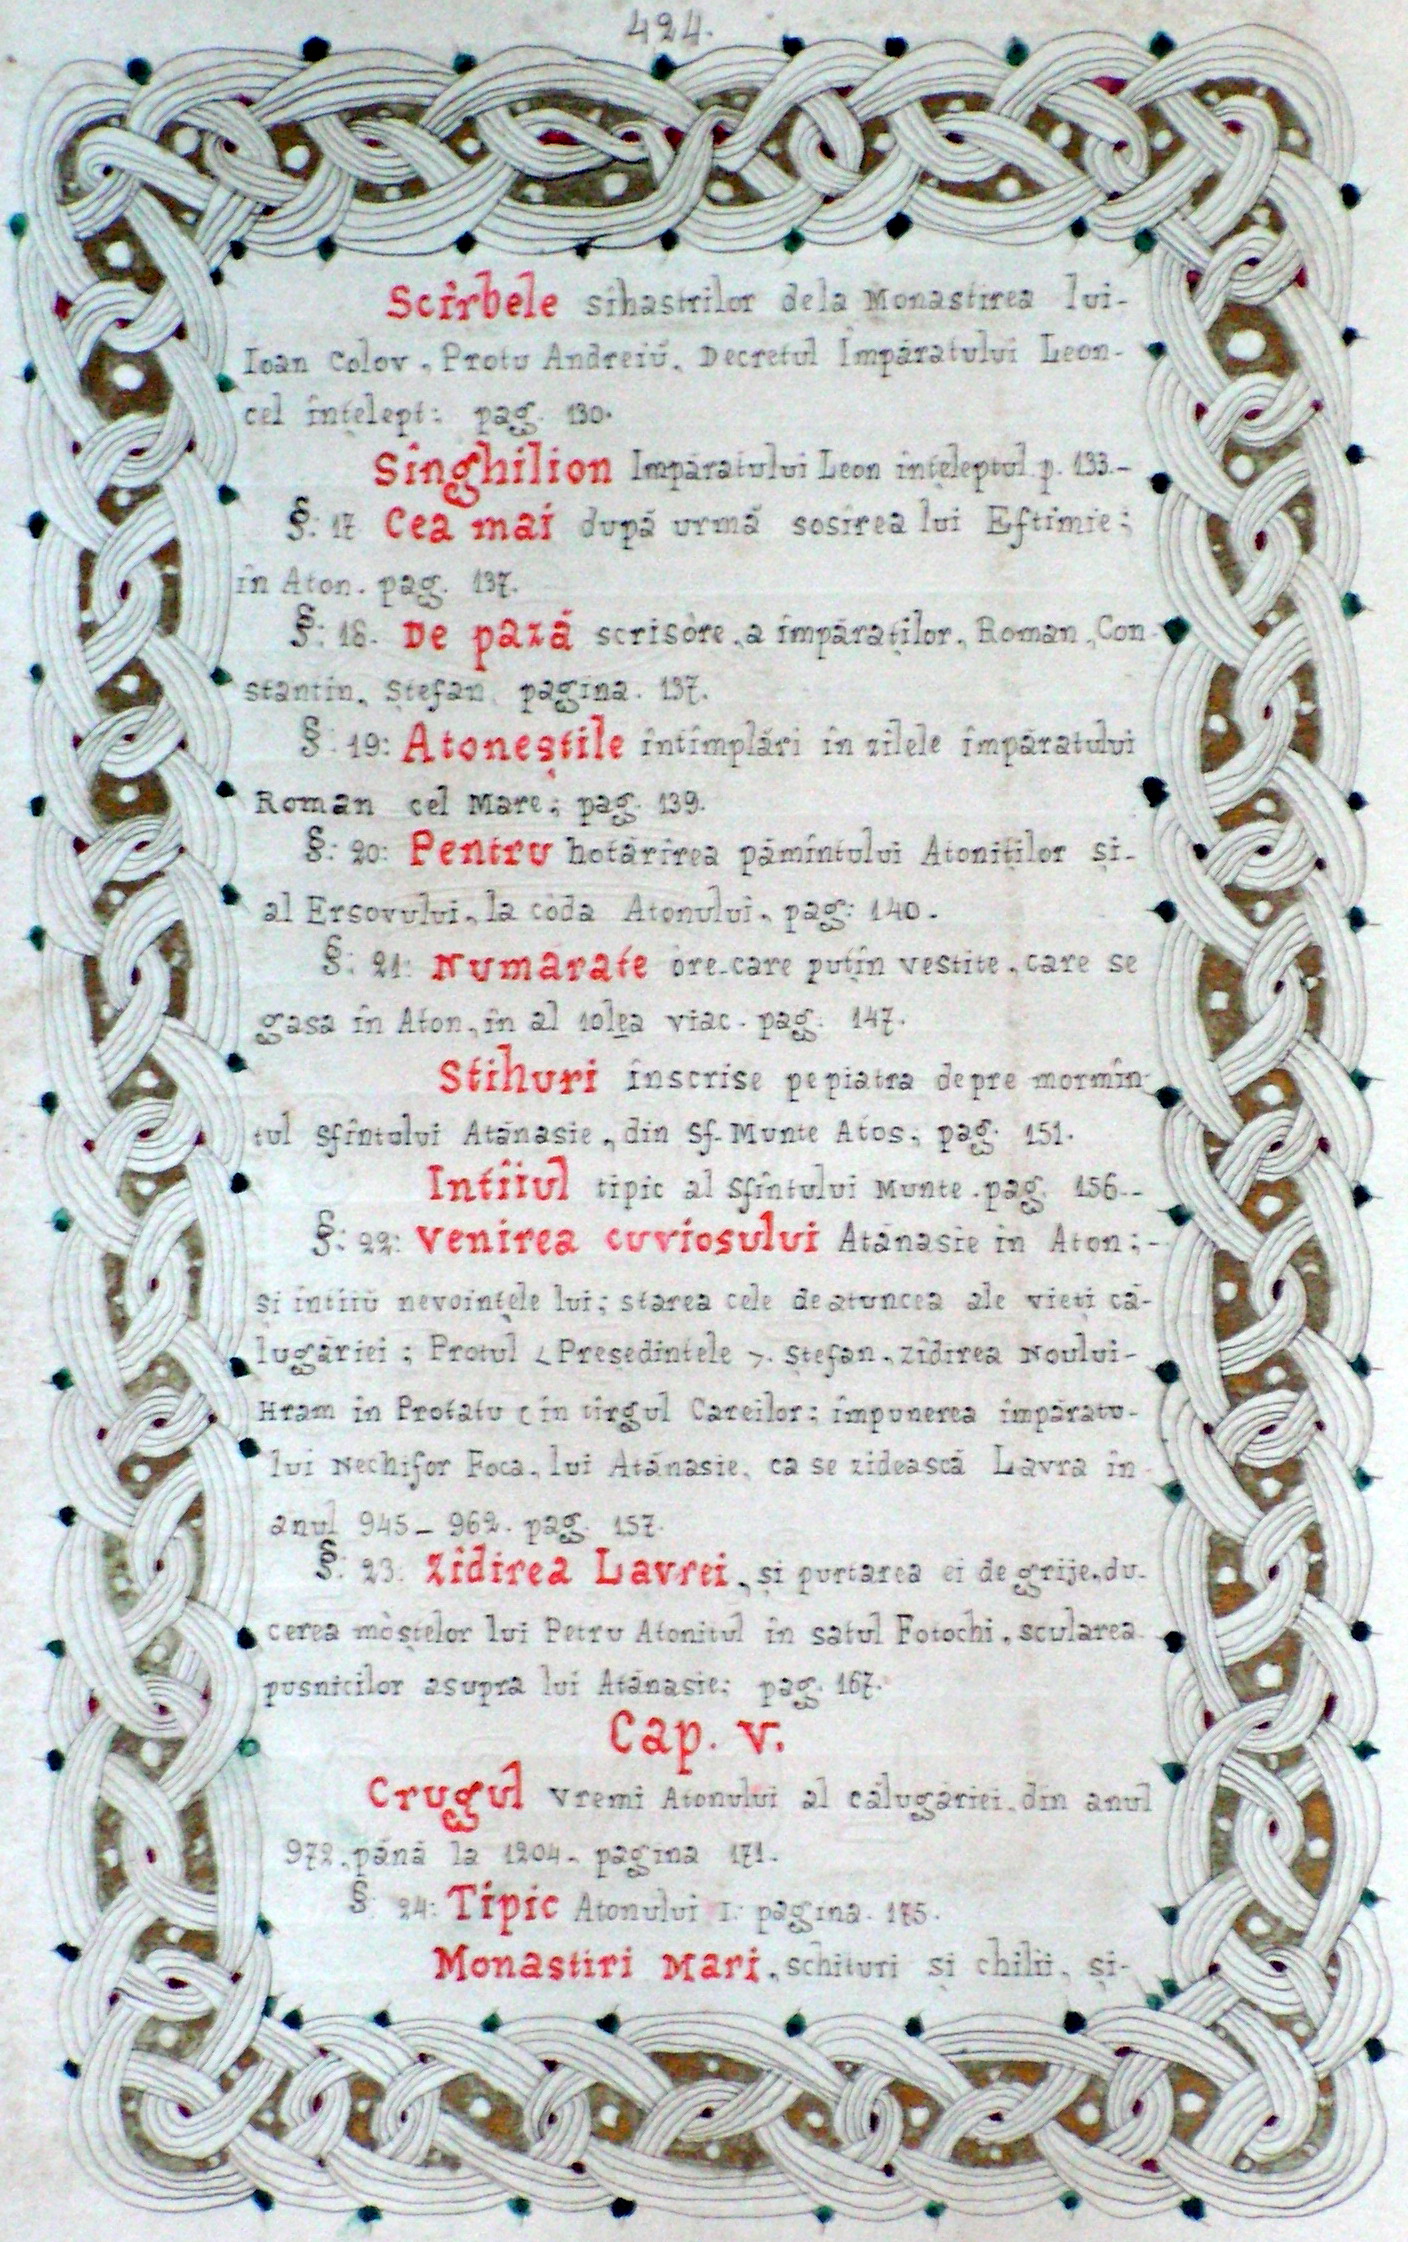 424.
Scîrbele sihastrilor dela Monastirea lui-
Ioan Colov, Protu Andreiŭ, Decretul Împăratului Leon-
cel înțelept: pag. 130.
Singhilion Împăratului Leon înțeleptul p. 133.-
§: 17 Cea mai după urmă sosirea lui Eftimie;
în Aton. pag. 137.
§: 18. De pază scrisòre, a împăraților, Roman, Con-
stantin, Ștefan, pagina. 137.
§: 19: Atoneștile întîmplări în zilele împăratului
Roman cel Mare; pag. 139.
§: 20: Pentru hotărîrea pămîntului Atoniților și-
al Ersovului, la còda Atonului, pag: 140.
§: 21: Numarate òre-care puțin vestite, care se
gasa în Aton, în al 10lea viac. pag: 147.
Stihuri înscrise pe piatra depre mormîn-
tul sfîntului Atănasie, din Sf. Munte Atos, pag. 151.
Intîiul tipic al Sfîntului Munte. pag. 156.-
§: 22: Venirea cuviosului Atănasie în Aton;-
și intîiŭ nevoințele lui; starea cele deatuncea ale vieți că-
lugăriei; Protul <Președintele>. Ștefan, zidirea Noului-
Hram în Protatu (în tîrgul Careilor; impunerea împăratu-
lui Nechifor Foca, lui Atănasie, ca se zidească Lavra în
anul 945-962. pag. 157.
§: 23: Zidirea Lavrei, și purtarea ei de grije, du-
cerea mòștelor lui Petru Atonitul în satul Fotochi, scularea
pusnicilor asupra lui Atănasie; pag. 167.
Cap. V.
Crugul vremi Atonului al călugăriei, din anul
972, până la 1204, pagina 171.
§ 24: Tipic Atonului I: pagina. 175.
Monastiri Mari, schituri și chilii, și-